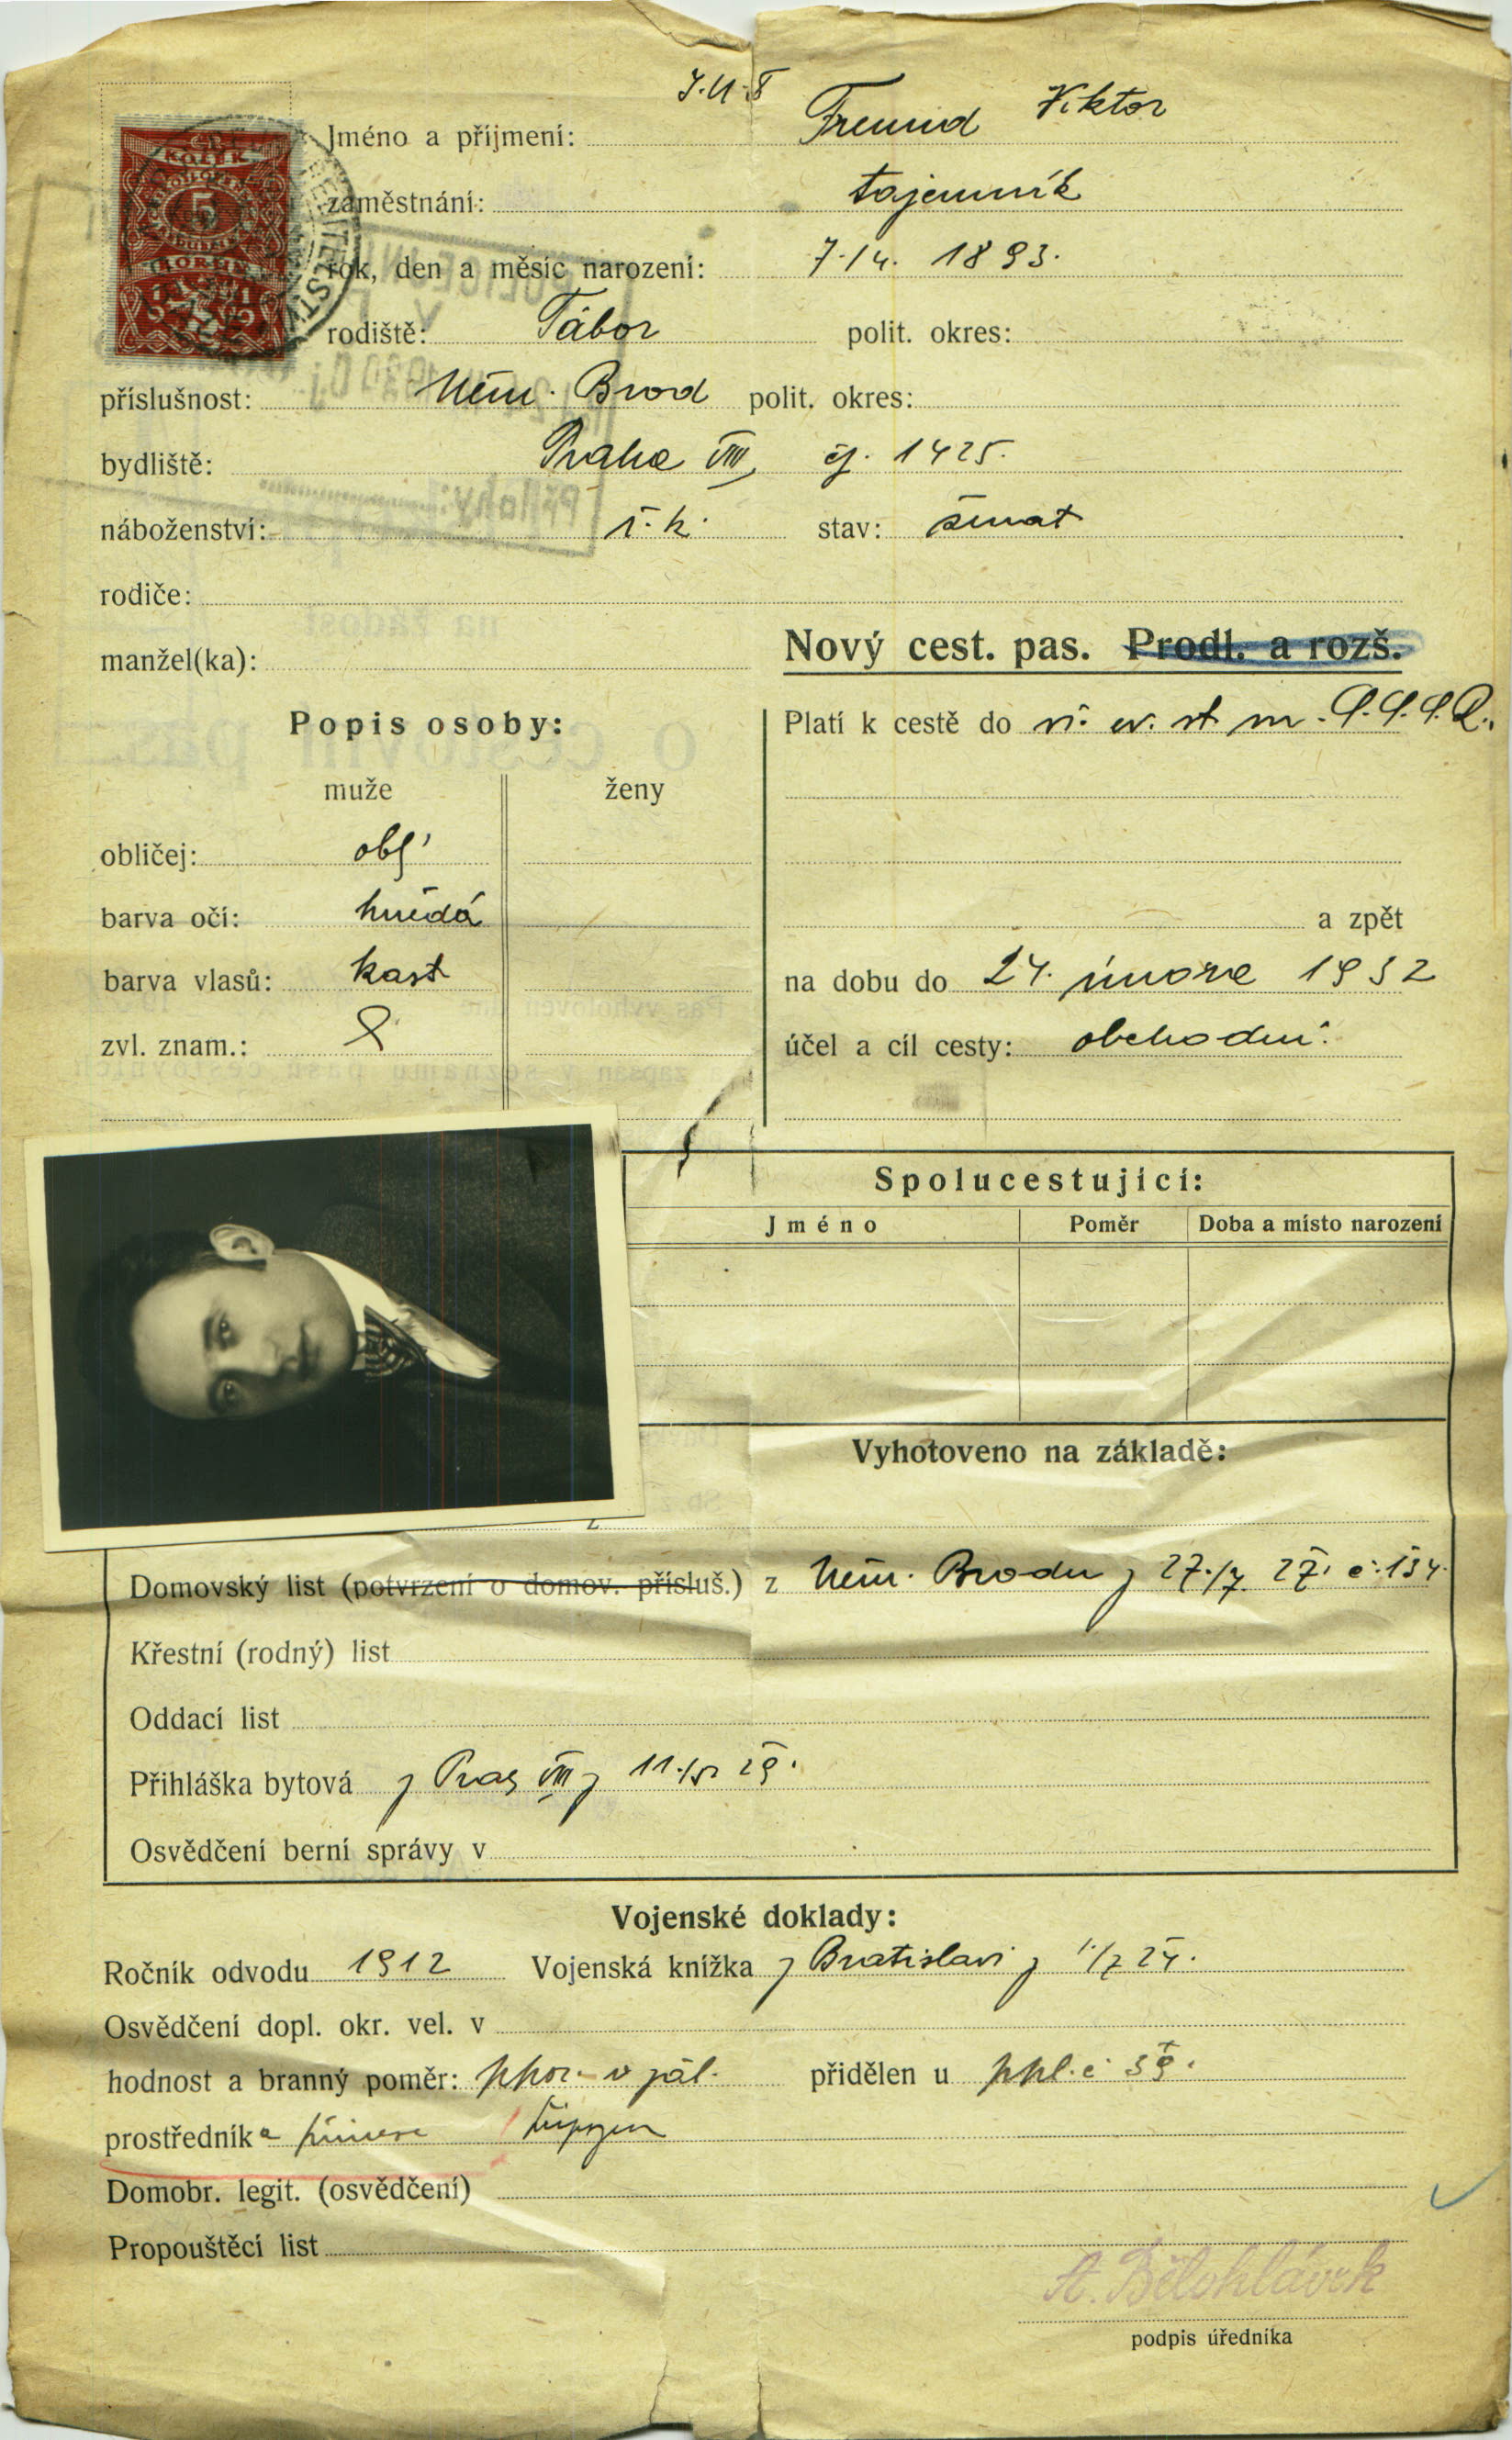 Jméno a příjmení: Freund Viktor
zaměstnání: tajemník
rok, den a měsíc narození: 7./4. 1893.
rodiště: Tábor polit. okres:
příslušnost: Něm. Brod polit. okres:
bydliště: Praha VIII, čj. 1425.
náboženství: ř. k. stav: ženat
rodiče:
manžel(ka):
Nový cest. pas. Prodl. a rozš.
Popis osoby:
muže ženy
obličej: obl.
barva očí: hnědá
barva vlasů: kašt
zvl. znam.:
Platí k cestě do vš. ev. st. S.S.S.R.
a zpět
na dobu do 24. února 1932
účel a cíl cesty: obchodní.
Spolucestující:
Jméno Poměr Doba a místo narození
Vyhotoveno na základě:
z
Domovský list (potvrzení o domov. přísluš.) z Něm. Brodu z 27./7. 27. č. 134.
Křestní (rodný) list
Oddací list
Přihláška bytová z Prahy VIII z 29.
Osvědčení berní správy v
Vojenské doklady:
Ročník odvodu 1912 Vojenská knížka z Bratislavi z 1./7 24.
Osvědčení dopl. okr. vel. v
hodnost a branný poměr: ppor. v zál. přidělen u ppl. č 39.
prostředník
Domobr. legit. (osvědčení)
Propouštěcí list
A. Bělohlávek
podpis úředníka